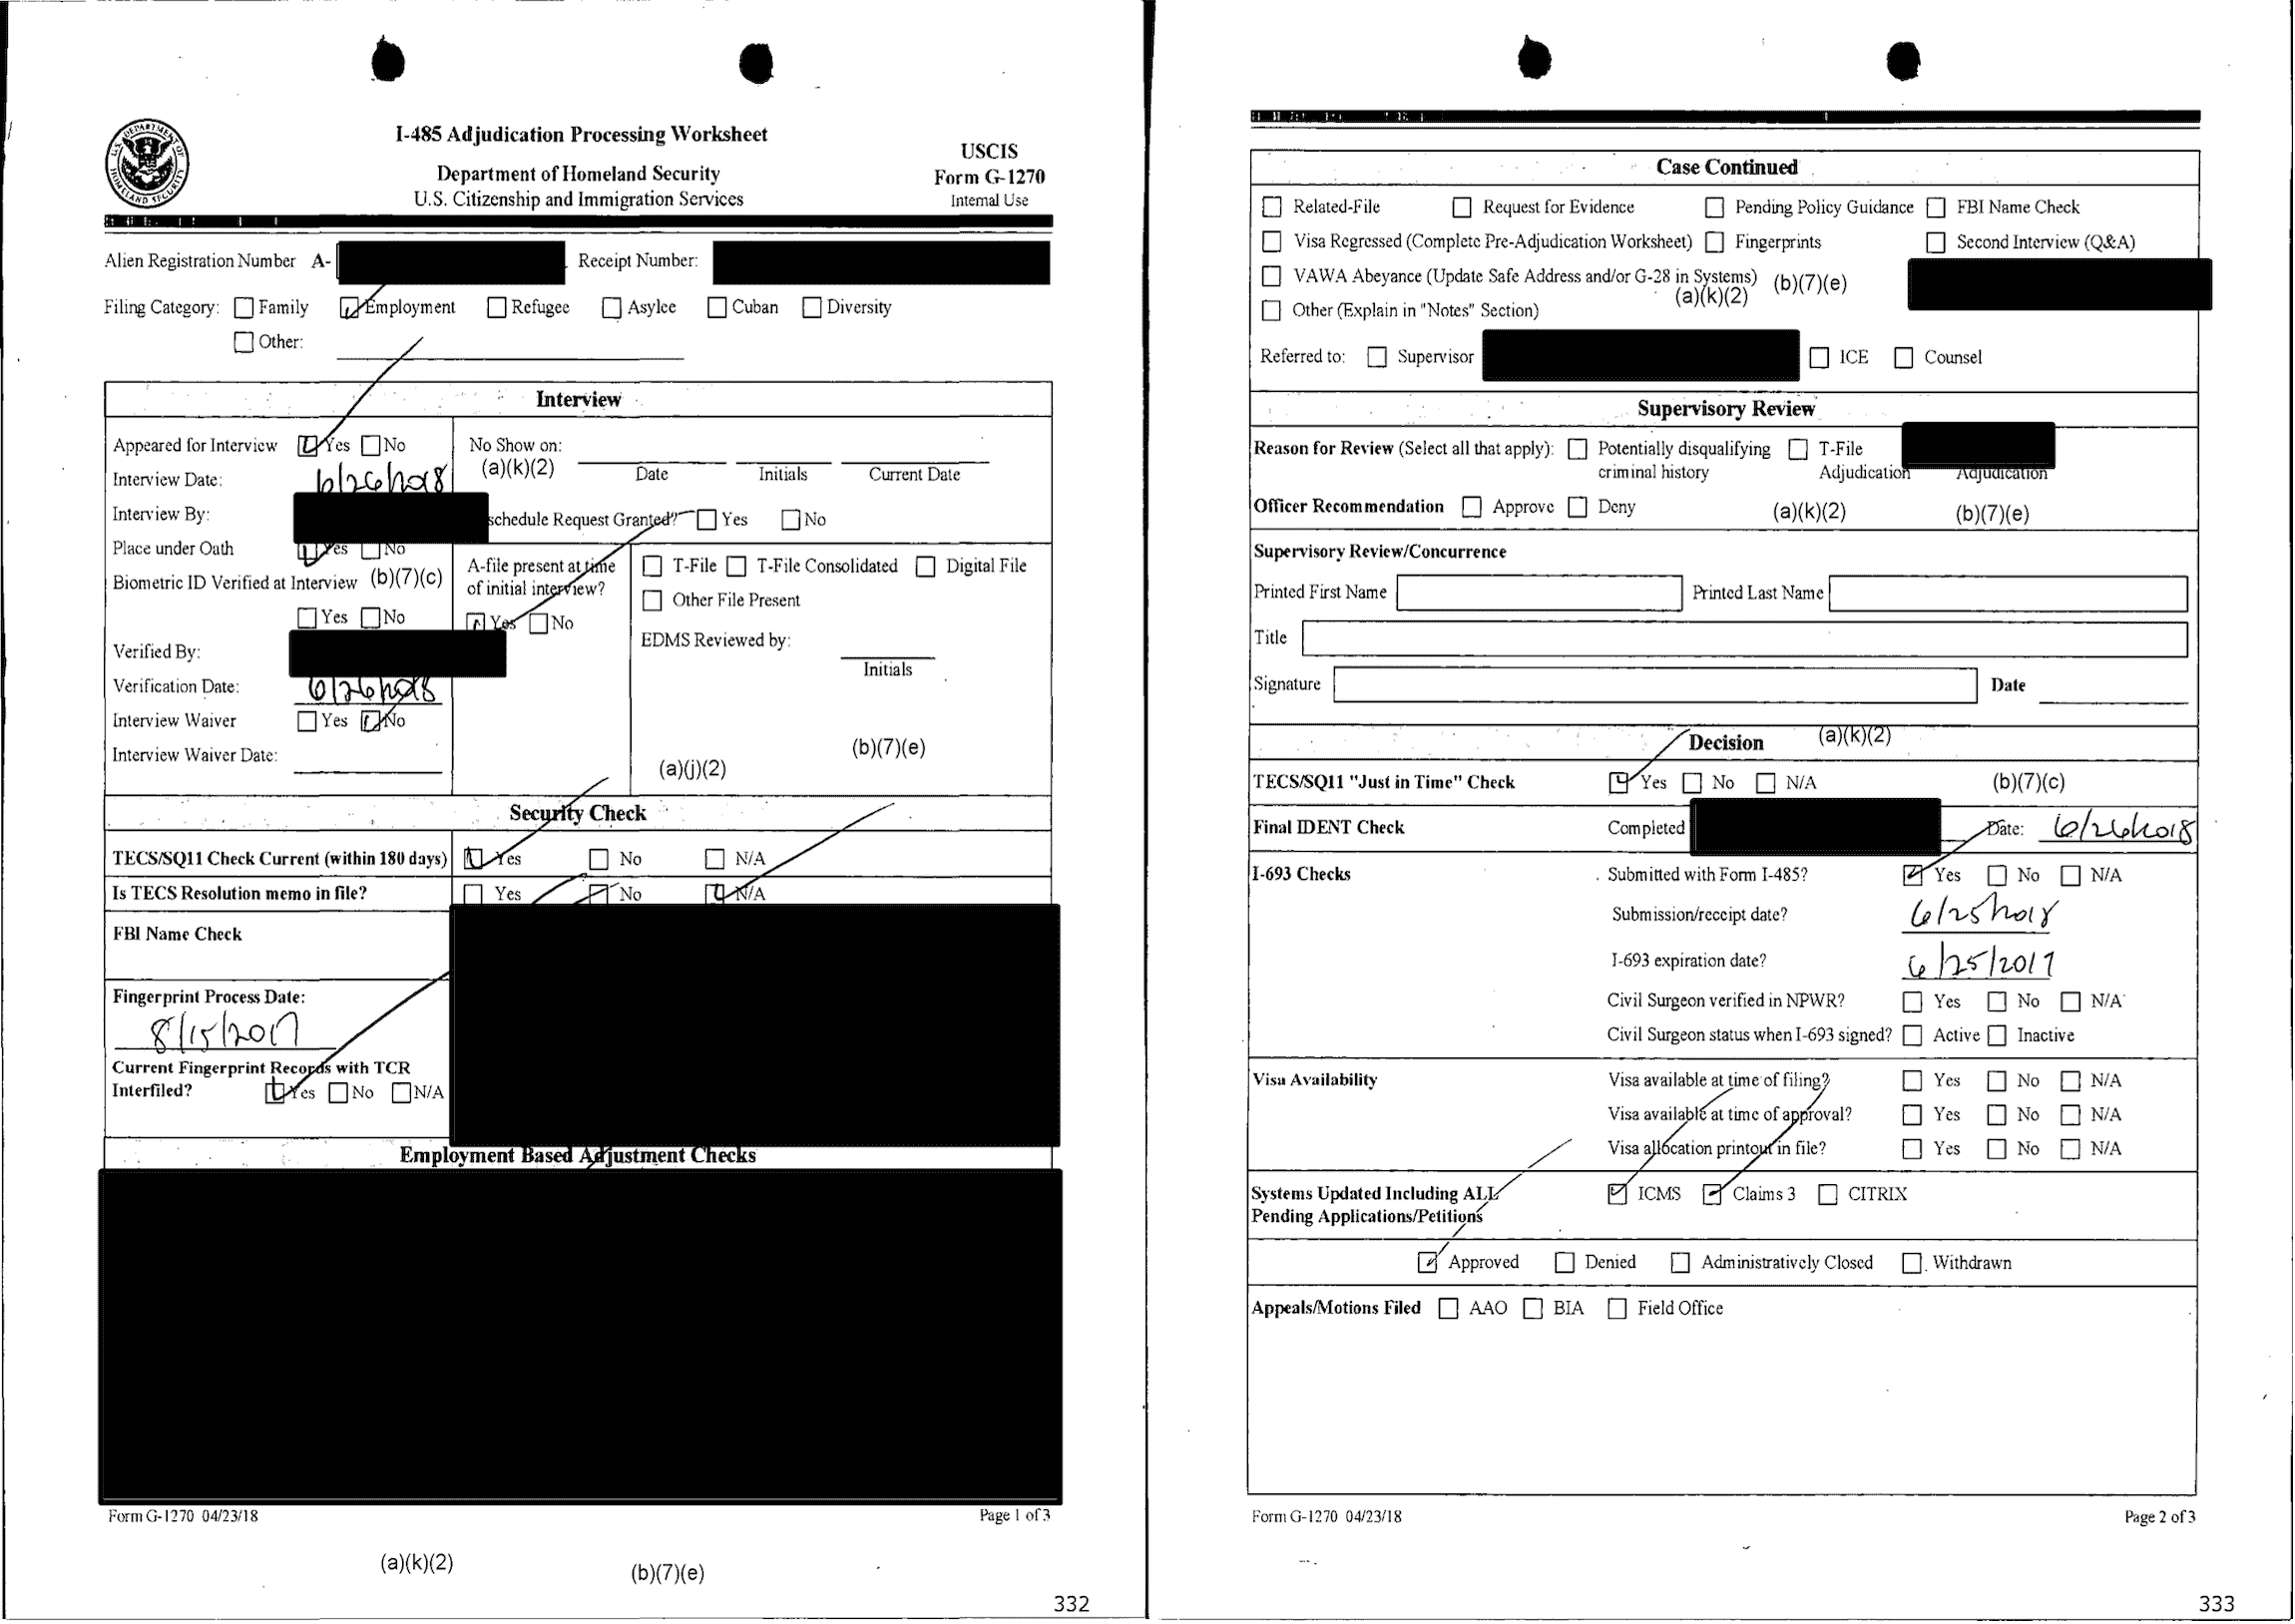 I-485 Adjudication Processing Worksheet
Department of Homeland Security
U.S. Citizenship and Immigration Services
USCIS
Form G-1270
Internal Use
Alien Registration Number A- Receipt Number:
Filing Category: Family Employment Refugee Asylee Cuban Diversity
Other:
Interview
Appeared for Interview Yes No
Interview Date: 6/26/2018
Interview By:
Place under Oath Yes No
Biometric ID Verified at Interview (b)(7)(c)
Yes No
Verified By:
Verification Date: 6/26/2018
Interview Waiver Yes No
Interview Waiver Date:
No Show on:
(a)(k)(2)
Date Initials Current Date
schedule Request Granted? Yes No
A-file present at time
of initial interview?
Yes No
T-File T-File Consolidated Digital File
Other File Present
EDMS Reviewed by:
Initials
(b)(7)(e)
(a)(j)(2)
Security Check
TECS/SQ11 Check Current (within 180 days) Yes No N/A
Is TECS Resolution memo in file? Yes No N/A
FBI Name Check
Fingerprint Process Date:
8/15/2017
Current Fingerprint Records with TCR
Interfiled? Yes No N/A
Employment Based Adjustment Checks
Form G-1270 04/23/18 Page 1 of 3
(a)(k)(2) (b)(7)(e)
332
Case Continued
Related-File Request for Evidence Pending Policy Guidance FBI Name Check
Visa Regressed (Complete Pre-Adjudication Worksheet) Fingerprints Second Interview (Q&A)
VAWA Abeyance (Update Safe Address and/or G-28 in Systems) (b)(7)(e)
(a)(k)(2)
Other (Explain in "Notes" Section)
Referred to: Supervisor ICE Counsel
Supervisory Review
Reason for Review (Select all that apply): Potentially disqualifying T-File
criminal history Adjudication Adjudication
Officer Recommendation Approve Deny (a)(k)(2) (b)(7)(e)
Supervisory Review/Concurrence
Printed First Name Printed Last Name
Title
Signature Date
Decision (a)(k)(2)
TECS/SQ11 "Just in Time" Check Yes No N/A (b)(7)(c)
Final IDENT Check Completed Date: 6/26/2018
I-693 Checks Submitted with Form I-485? Yes No N/A
Submission/receipt date? 6/25/2018
I-693 expiration date? 6/25/2019
Civil Surgeon verified in NPWR? Yes No N/A
Civil Surgeon status when I-693 signed? Active Inactive
Visa Availability Visa available at time of filing? Yes No N/A
Visa available at time of approval? Yes No N/A
Visa allocation printout in file? Yes No N/A
Systems Updated Including ALL ICMS Claims 3 CITRIX
Pending Applications/Petitions
Approved Denied Administratively Closed Withdrawn
Appeals/Motions Filed AAO BIA Field Office
Form G-1270 04/23/18 Page 2 of 3
333